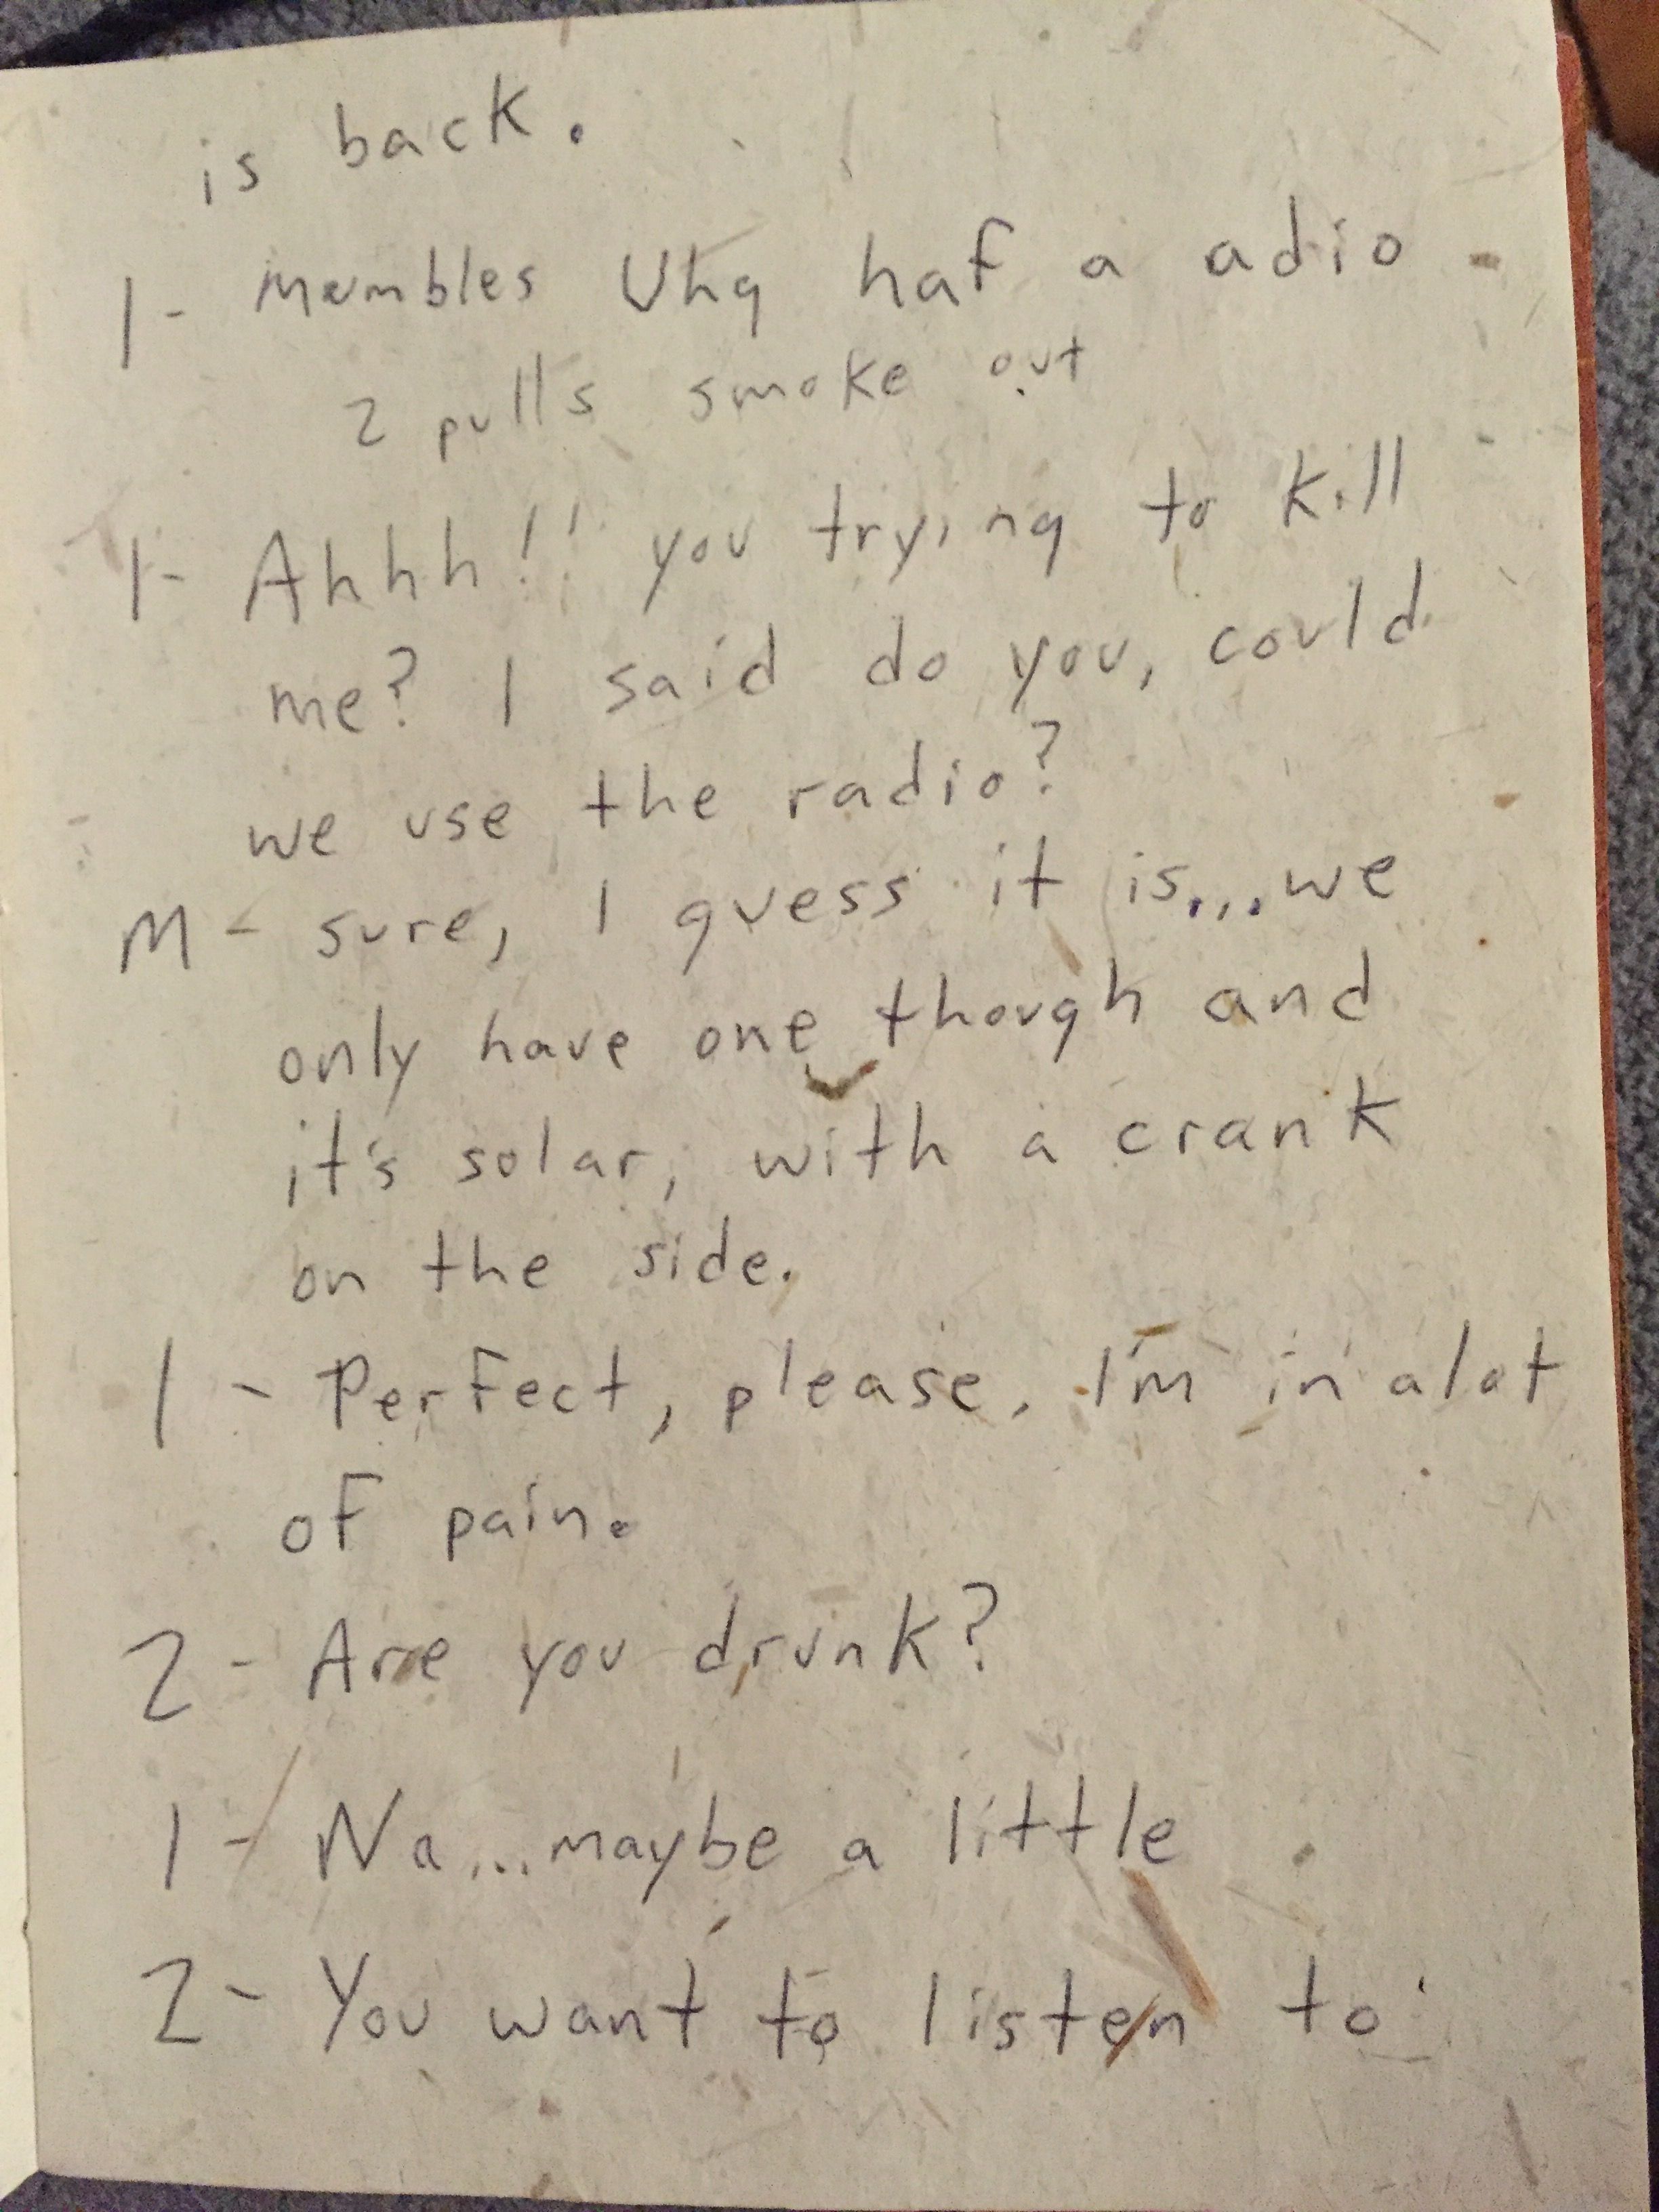 is back.
1- mumbles Uhg haf a adio
2 pulls smoke out
1- Ahhh!! you trying to kill
me? I said do you, could
we use the radio?
M- sure, I guess it is...we
only have one though and
it's solar, with a crank
on the side.
1- Perfect, please. I'm in alot
of pain.
2- Are you drunk?
1- Na...maybe a little
2- You want to listen to